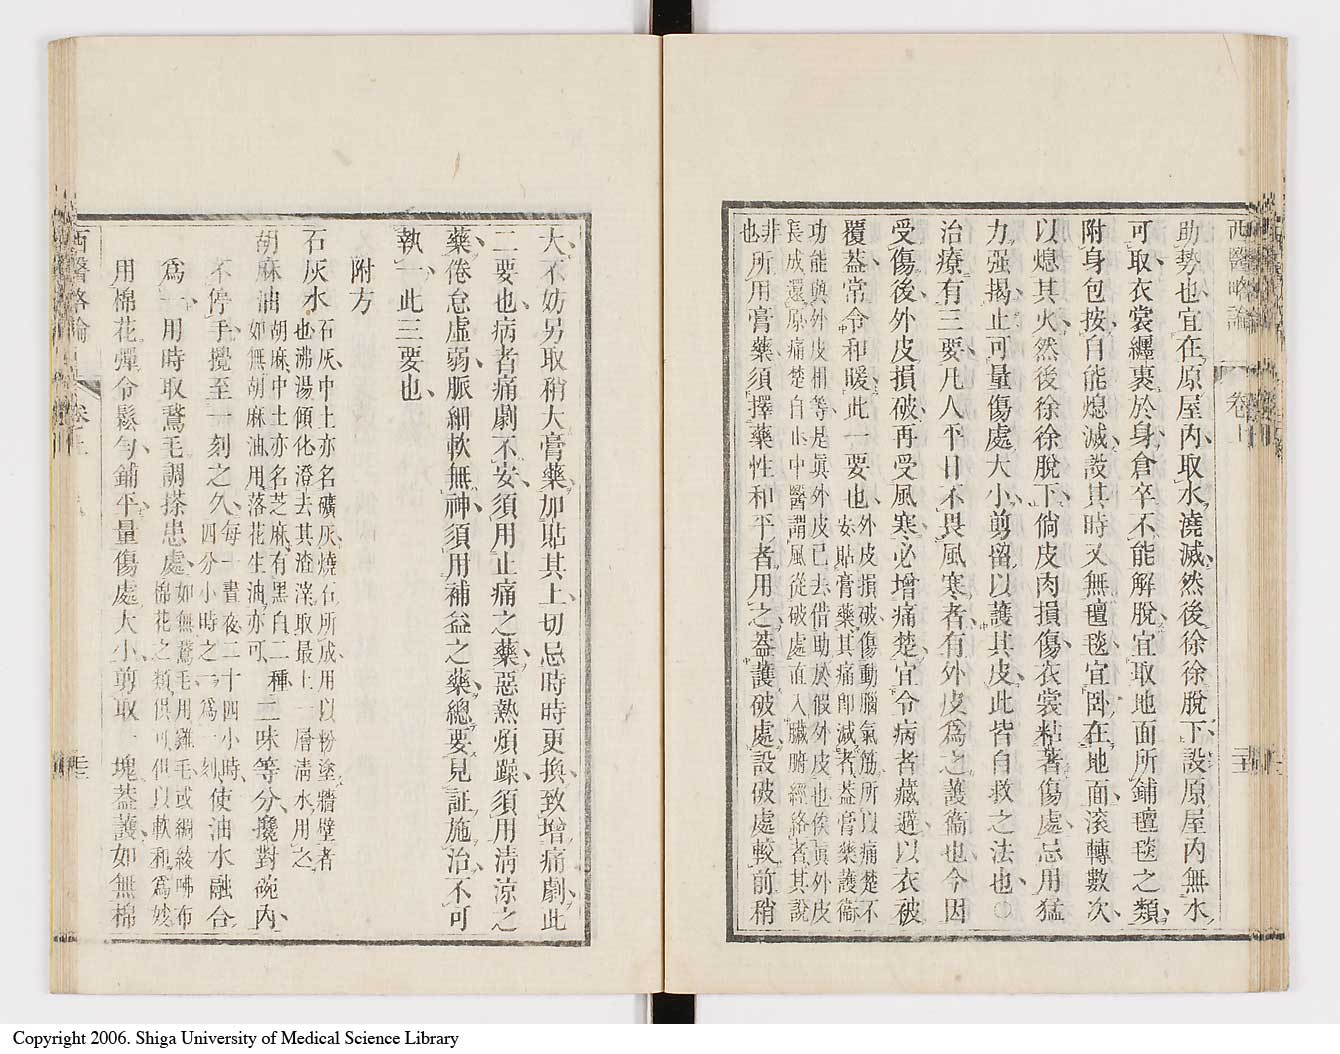 西醫略論 卷上
助勢也宜在原屋內取水澆滅然後徐徐脫下設原屋內無水
可取衣裳纏裹於身倉卒不能解脫宜取地面所鋪氊毯之類
附身包按自能熄滅設其時又無氊毯宜卧在地面滾轉數次
以熄其火然後徐徐脫下倘皮肉損傷衣裳粘著傷處忌用猛
力强揭止可量傷處大小剪留以護其皮此皆自救之法也○
治療有三要凡人平日不畏風寒者有外皮爲之護衞也今因
受傷後外皮損破再受風寒必增痛楚宜令病者藏避以衣被
覆葢常令和暖此一要也外皮損破傷動腦氣筋所以痛楚不
安貼膏藥其痛卽減者葢膏藥護衞
功能與外皮相等是眞外皮已去借助於假外皮也俟眞外皮
長成還原痛楚自止中醫謂風從破處直入臟腑經絡者其說
非
也所用膏藥須擇藥性和平者用之葢護破處設破處較前稍
大不妨另取稍大膏藥加貼其上切忌時時更換致增痛劇此
二要也病者痛劇不安須用止痛之藥惡熱煩躁須用淸涼之
藥倦怠虛弱脈細軟無神須用補益之藥總要見証施治不可
執一此三要也
附方
石灰水石灰中土亦名礦灰燒石所成用以粉塗牆壁者
也沸湯傾化澄去其渣滓取最上一層淸水用之
胡麻油胡麻中土亦名芝麻有黑白二種
如無胡麻油用落花生油亦可二味等分攙對碗內
不停手攪至一刻之久每一晝夜二十四小時
四分小時之一爲一刻使油水融合
爲一用時取鵞毛調搽患處如無鵞毛用雞毛或綢綾咈布
棉花之類俱可但以軟和爲妙
用棉花彈令鬆勻鋪平量傷處大小剪取一塊葢護如無棉
西醫略論 卷上
Copyright 2006. Shiga University of Medical Science Library